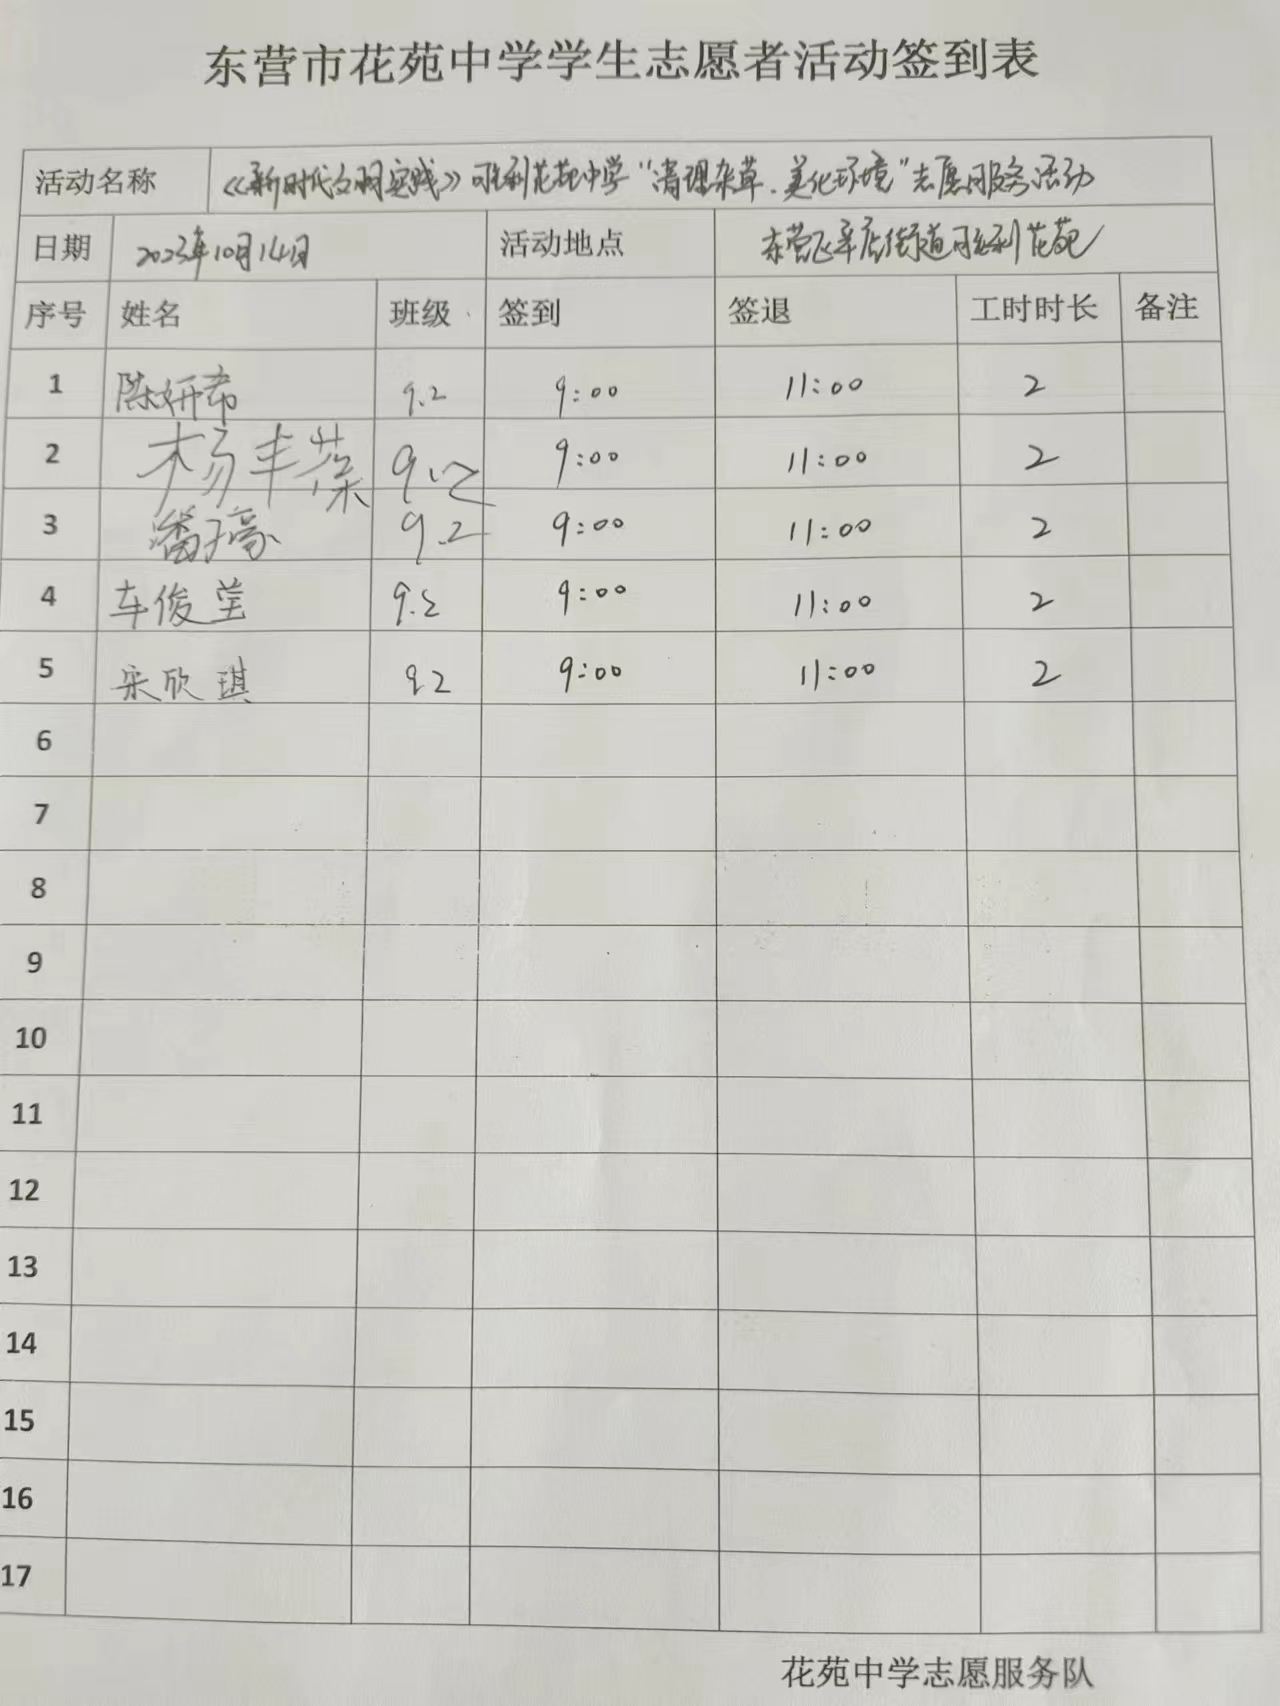 东营市花苑中学学生志愿者活动签到表
活动名称 《新时代文明实践》胜利花苑中学“清理杂草、美化环境”志愿服务活动
日期 2023年10月14日 活动地点 东营区辛店街道胜利花苑
序号 姓名 班级 签到 签退 工时时长 备注
1 陈妍希 9.2 9:00 11:00 2
2 杨丰蕖 9.2 9:00 11:00 2
3 潘子豪 9.2 9:00 11:00 2
4 车俊莹 9.2 9:00 11:00 2
5 宋欣琪 9.2 9:00 11:00 2
6
7
8
9
10
11
12
13
14
15
16
17
花苑中学志愿服务队